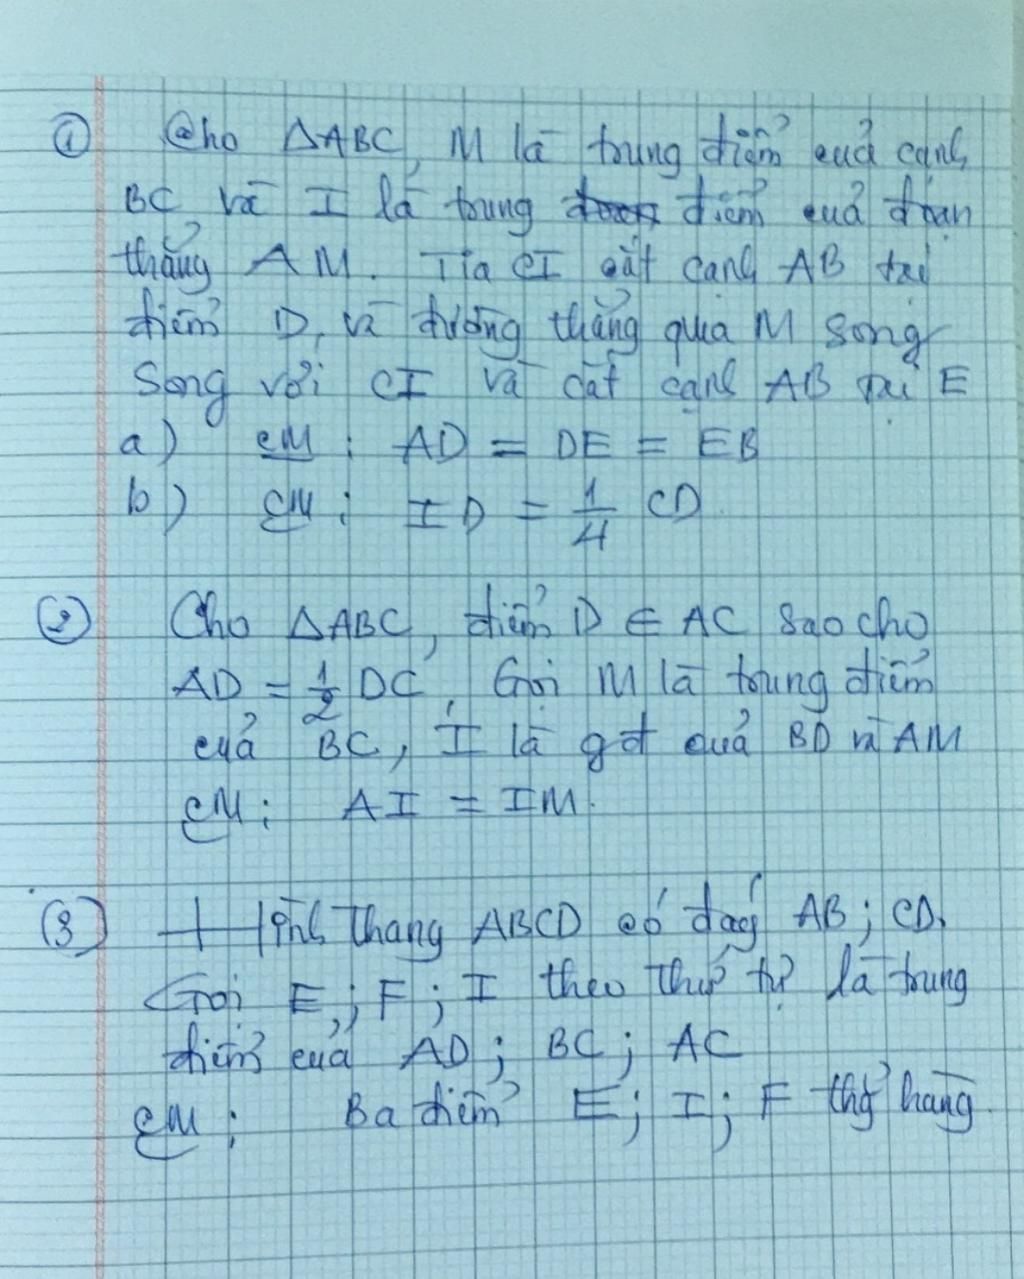 ① Cho ΔABC, M là trung điểm của cạnh
BC, và I là trung điểm của đoạn
thẳng AM. Tia CI cắt cạnh AB tại
điểm D, và đường thẳng qua M song
song với CI và cắt cạnh AB tại E
a) CM : AD = DE = EB
b) CM : ID = 1/4 CD
② Cho ΔABC, điểm D ∈ AC sao cho
AD = 1/2 DC. Gọi M là trung điểm
của BC, I là gđ của BD và AM
CM : AI = IM.
③ Hình thang ABCD có đáy AB ; CD.
Gọi E ; F ; I theo thứ tự là trung
điểm của AD ; BC ; AC
CM : Ba điểm E ; I ; F thg hàng.